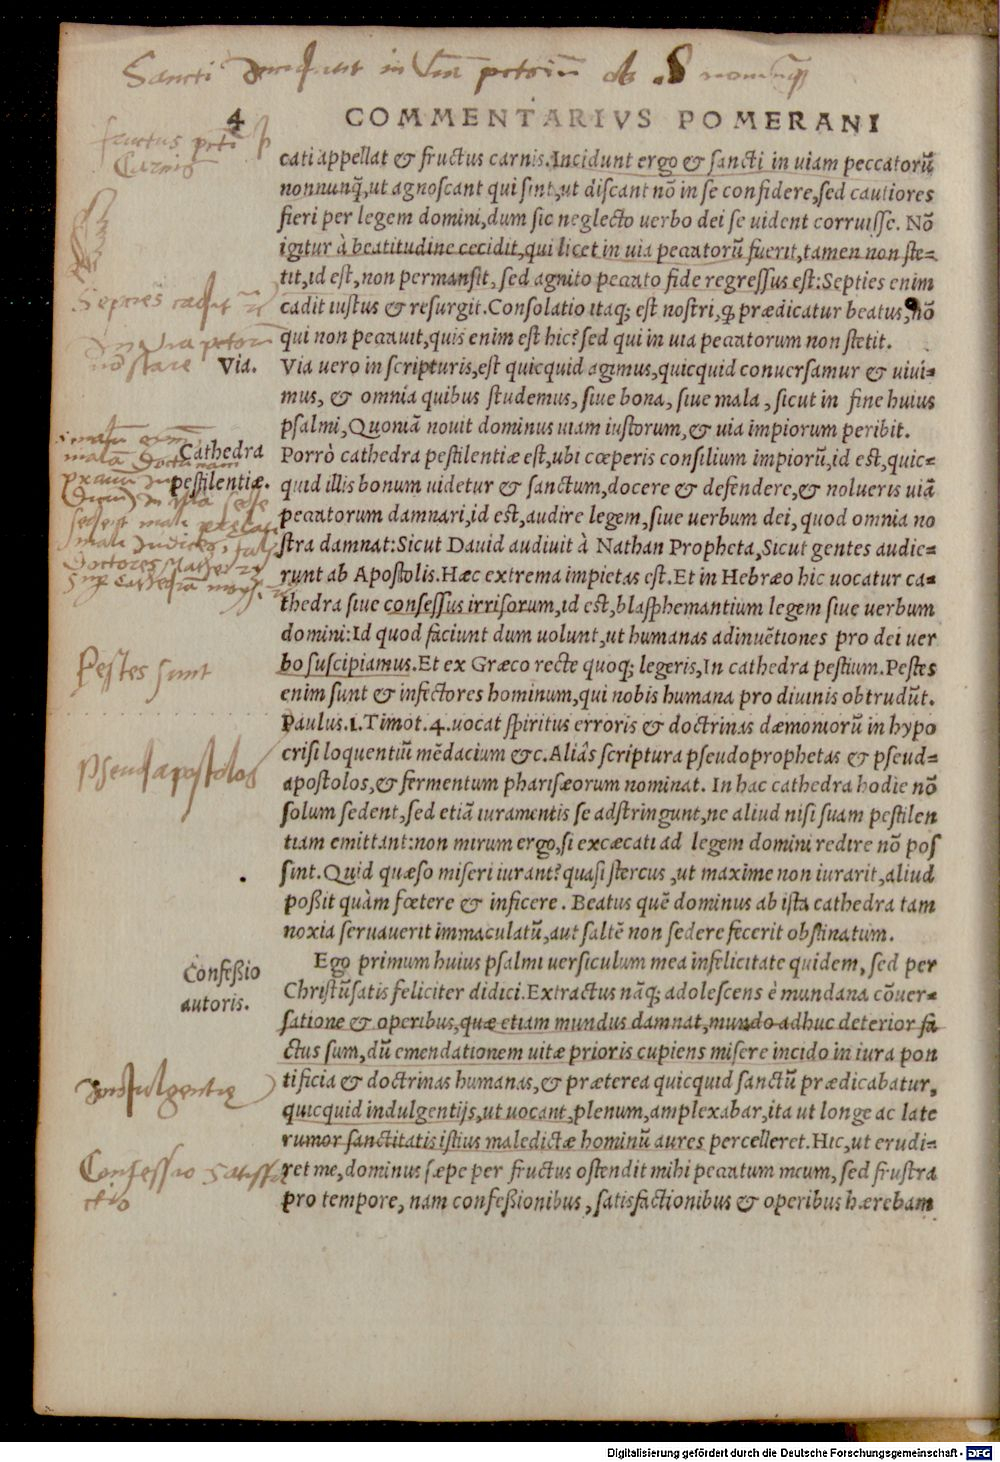 Sancti in viam
4
COMMENTARIVS POMERANI
fructus
Carnis
cati appellat & fructus carnis.Incidunt ergo & sancti in uiam peccatorũ
nonnunq̃,ut agnoscant qui sint,ut discant nõ in se confidere,sed cautiores
fieri per legem domini,dum sic neglecto uerbo dei se uident corruisse. Nõ
igitur à beatitudine cecidit,qui licet in uia peccatorũ fuerit,tamen non ste-
tit,id est,non permansit, sed agnito peccato fide regressus est:Septies enim
Septies cadit
cadit iustus & resurgit.Consolatio itaq; est nostri,q prædicatur beatus,nõ
qui non peccauit,quis enim est hic?sed qui in uia peccatorum non stetit.
nõ stare
Via.
Via uero in scripturis,est quicquid agimus,quicquid conuersamur & uiui-
mus, & omnia quibus studemus, siue bona, siue mala , sicut in fine huius
psalmi,Quoniã nouit dominus uiam iustorum,& uia impiorum peribit.
Cathedra
pestilentiæ.
Porrò cathedra pestilentiæ est,ubi cœperis consilium impiorũ,id est,quic-
quid illis bonum uidetur & sanctum,docere & defendere,& nolueris uiã
peccatorum damnari,id est,audire legem,siue uerbum dei, quod omnia no
stra damnat:Sicut Dauid audiuit à Nathan Propheta,Sicut gentes audie-
runt ab Apostolis.Hæc extrema impietas est.Et in Hebræo hic uocatur ca-
thedra siue consessus irrisorum,id est,blasphemantium legem siue uerbum
domini:Id quod faciunt dum uolunt,ut humanas adinuẽtiones pro dei uer
bo suscipiamus.Et ex Græco recte quoq; legeris,In cathedra pestium.Pestes
Pestes sunt
enim sunt & infectores hominum,qui nobis humana pro diuinis obtrudũt.
Paulus.1.Timot.4.uocat spiritus erroris & doctrinas dæmoniorũ in hypo
crisi loquentiũ mẽdacium &c.Aliâs scriptura pseudoprophetas & pseud-
Pseudapostolos
apostolos,& fermentum pharisæorum nominat. In hac cathedra hodie nõ
solum sedent,sed etiã iuramentis se adstringunt,ne aliud nisi suam pestilen
tiam emittant:non mirum ergo,si excæcati ad legem domini redire nõ pos
sint.Quid quæso miseri iurant?quasi stercus ,ut maxime non iurarit,aliud
poßit quàm fœtere & inficere . Beatus quẽ dominus ab ista cathedra tam
noxia seruauerit immaculatũ,aut saltẽ non sedere fecerit obstinatum.
Confeßio
autoris.
Ego primum huius psalmi uersiculum mea infelicitate quidem, sed per
Christũ satis feliciter didici.Extractus nãq; adolescens è mundana cõuer-
satione & operibus,quæ etiam mundus damnat,mundo adhuc deterior fa
ctus sum,dũ emendationem uitæ prioris cupiens misere incido in iura pon
tificia & doctrinas humanas,& præterea quicquid sanctũ prædicabatur,
Indulgentię
quicquid indulgentijs,ut uocant,plenum,amplexabar,ita ut longe ac late
rumor sanctitatis istius maledictæ hominũ aures percelleret.Hic,ut erudi-
Confessio Satisfa
ctio
ret me,dominus sæpe per fructus ostendit mihi peccatum meum, sed frustra
pro tempore, nam confeßionibus, satisfactionibus & operibus hærebam
Digitalisierung gefördert durch die Deutsche Forschungsgemeinschaft - DFG